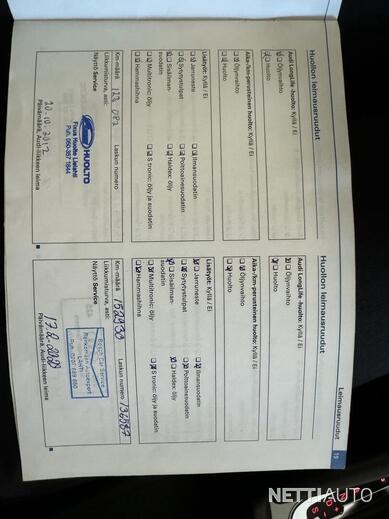 Leimausruudut
19
Huollon leimausruudut
Audi LongLife -huolto: Kyllä / Ei
Öljynvaihto
Huolto
Aika-/km-perusteinen huolto: Kyllä / Ei
Öljynvaihto
Huolto
Lisätyöt: Kyllä / Ei
Jarruneste
Ilmansuodatin
Sytytystulpat
Polttoainesuodatin
Sisäilman-
suodatin
Haldex: öljy
Multitronic: öljy
S tronic: öljy ja suodatin
Hammashihna
Km-määrä
Laskun numero
Liikkumisturva, asti:
Näyttö Service
HUOLTO
Fixus Huolto Lielahti
20.10.2017
Päivämäärä, Audi-liikkeen leima
Huollon leimausruudut
Audi LongLife -huolto: Kyllä / Ei
Öljynvaihto
Huolto
Aika-/km-perusteinen huolto: Kyllä / Ei
Öljynvaihto
Huolto
Lisätyöt: Kyllä / Ei
Jarruneste
Ilmansuodatin
Sytytystulpat
Polttoainesuodatin
Sisäilman-
suodatin
Haldex: öljy
Multitronic: öljy
S tronic: öljy ja suodatin
Hammashihna
Km-määrä
Laskun numero 136087
Liikkumisturva, asti:
Näyttö Service
Bosch Car Service
LAHTI
Päivämäärä, Audi-liikkeen leima
NETTIAUTO